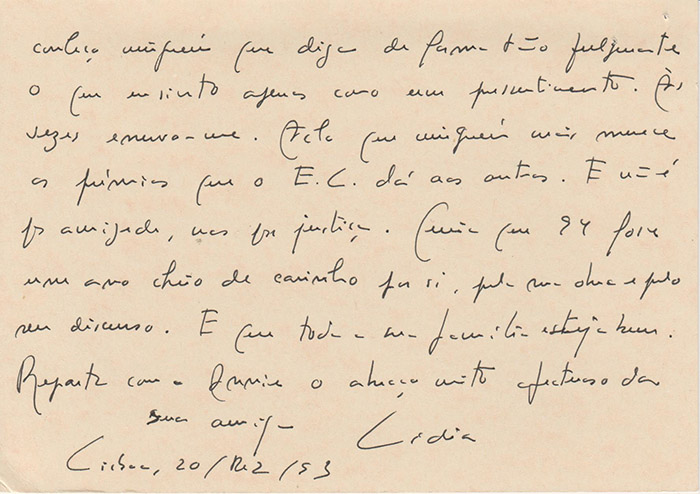 conheço ninguém que diga de forma tão fulgurante
o que eu sinto apenas como um pressentimento. Às
vezes enerva-me. Acho que ninguém mais merece
os prémios que o E.C. dá aos outros. E não é
por amizade, mas por justiça. Queria que 94 fosse
um ano cheio de carinho por si, pela sua obra e pelo
seu discurso. E que toda a sua família esteja bem.
Reparta com a Annie o abraço muito afectuoso da
sua amiga Lídia
Lisboa, 20/Dez/93